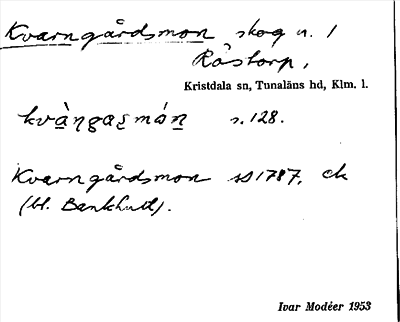 Kvarngårdsmon skog n. 1
Råstorp,
Kristdala sn, Tunaläns hd, Klm. l.
s. 128.
Kvarngårdsmon SS 1787, ek
(bl. Bankhult).
Ivar Modéer 1953